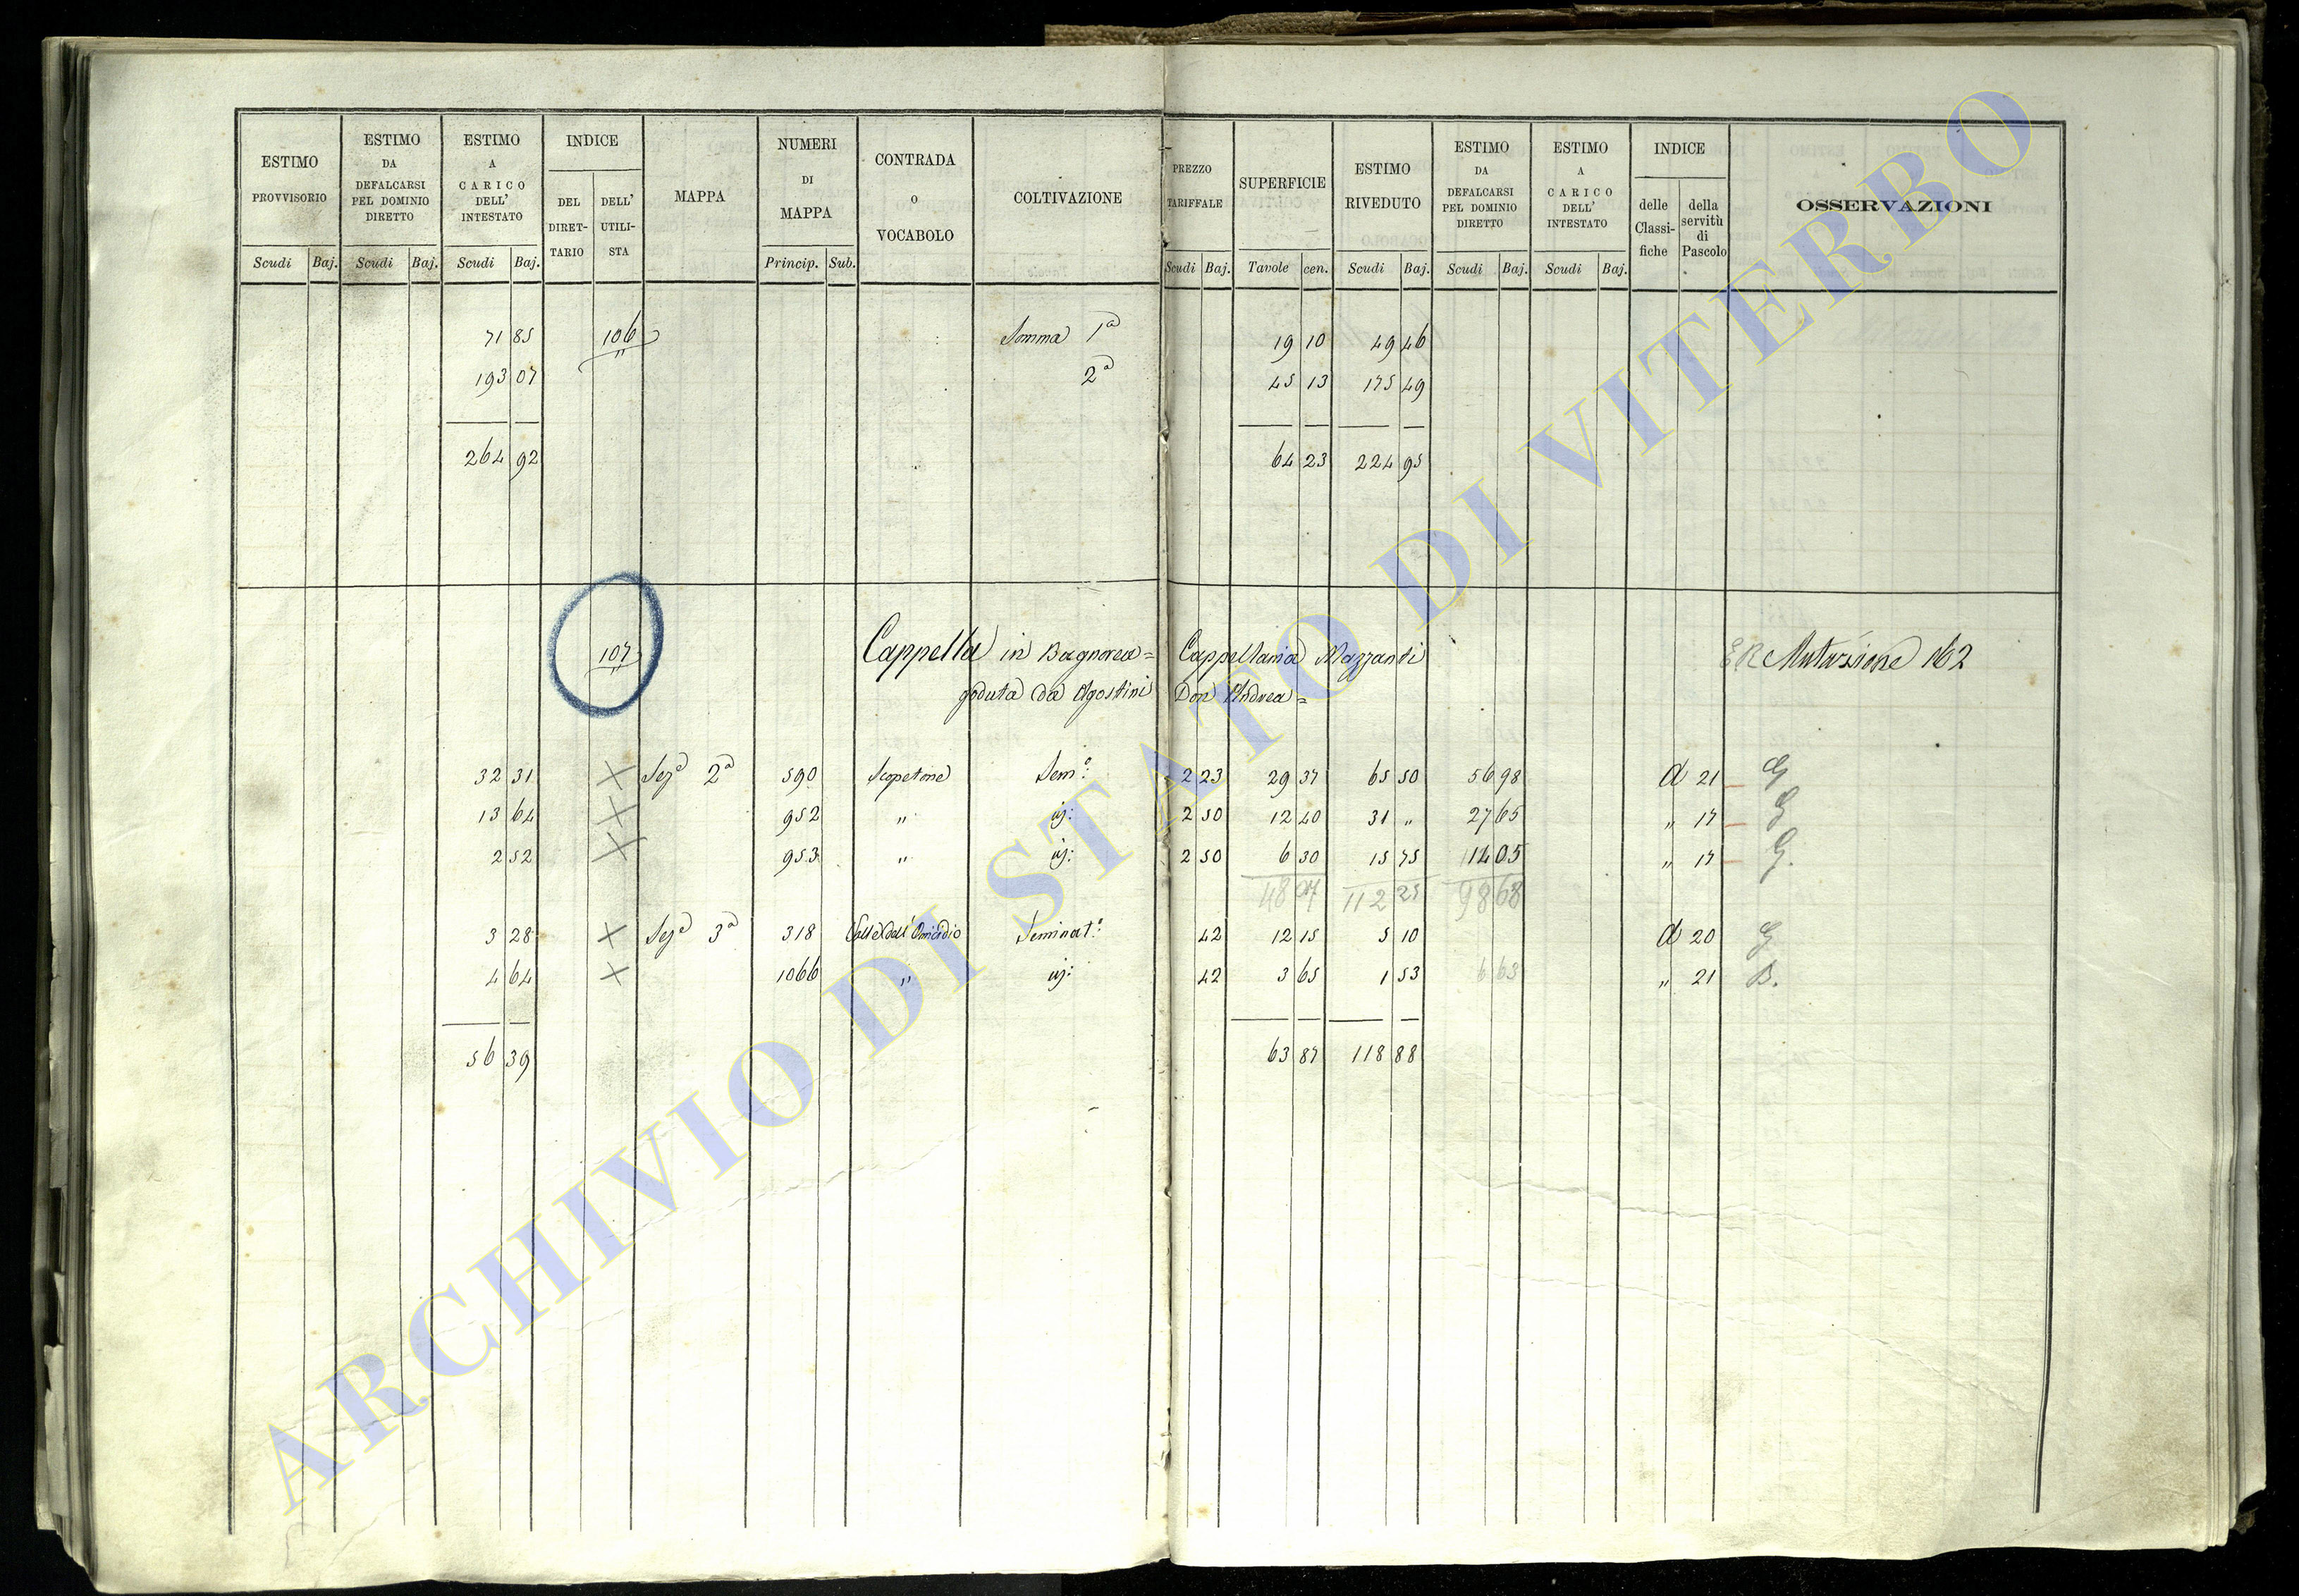 ESTIMO PROVVISORIO ESTIMO DA DEFALCARSI PEL DOMINIO DIRETTO ESTIMO A CARICO DELL' INTESTATO INDICE DEL DIRET-TARIO DELL' UTILI-STA MAPPA NUMERI DI MAPPA CONTRADA o VOCABOLO COLTIVAZIONE PREZZO TARIFFALE SUPERFICIE ESTIMO RIVEDUTO ESTIMO DA DEFALCARSI PEL DOMINIO DIRETTO ESTIMO A CARICO DELL' INTESTATO INDICE delle Classi-fiche della servitù di Pascolo OSSERVAZIONI
Scudi Baj. Scudi Baj. Scudi Baj. Princip. Sub. Scudi Baj. Tavole cen. Scudi Baj. Scudi Baj. Scudi Baj.
71 85 106 Somma 1ª 19 10 49 46
193 07 2ª 45 13 175 49
264 92 64 23 224 95
107 Cappella in Bagnorea = Cappellania Mazzanti ER Mutazione 162
goduta da Agostini Don Andrea =
32 31 X Sezª 2ª 590 Scopetone Sem.º 2 23 29 37 65 50 56 98 d 21 G
13 64 X 952 " id: 2 50 12 40 31 " 27 65 " 17 G
2 52 X 953 " id: 2 50 6 30 15 75 14 05 " 17 G.
48 07 112 25 98 68
3 28 X Sezª 3ª 318 Valle dell' Omicidio Seminat.º 42 12 15 5 10 d 20 G
4 64 X 1066 " id: 42 3 65 1 53 6 63 " 21 B.
56 39 63 87 118 88
ARCHIVIO DI STATO DI VITERBO